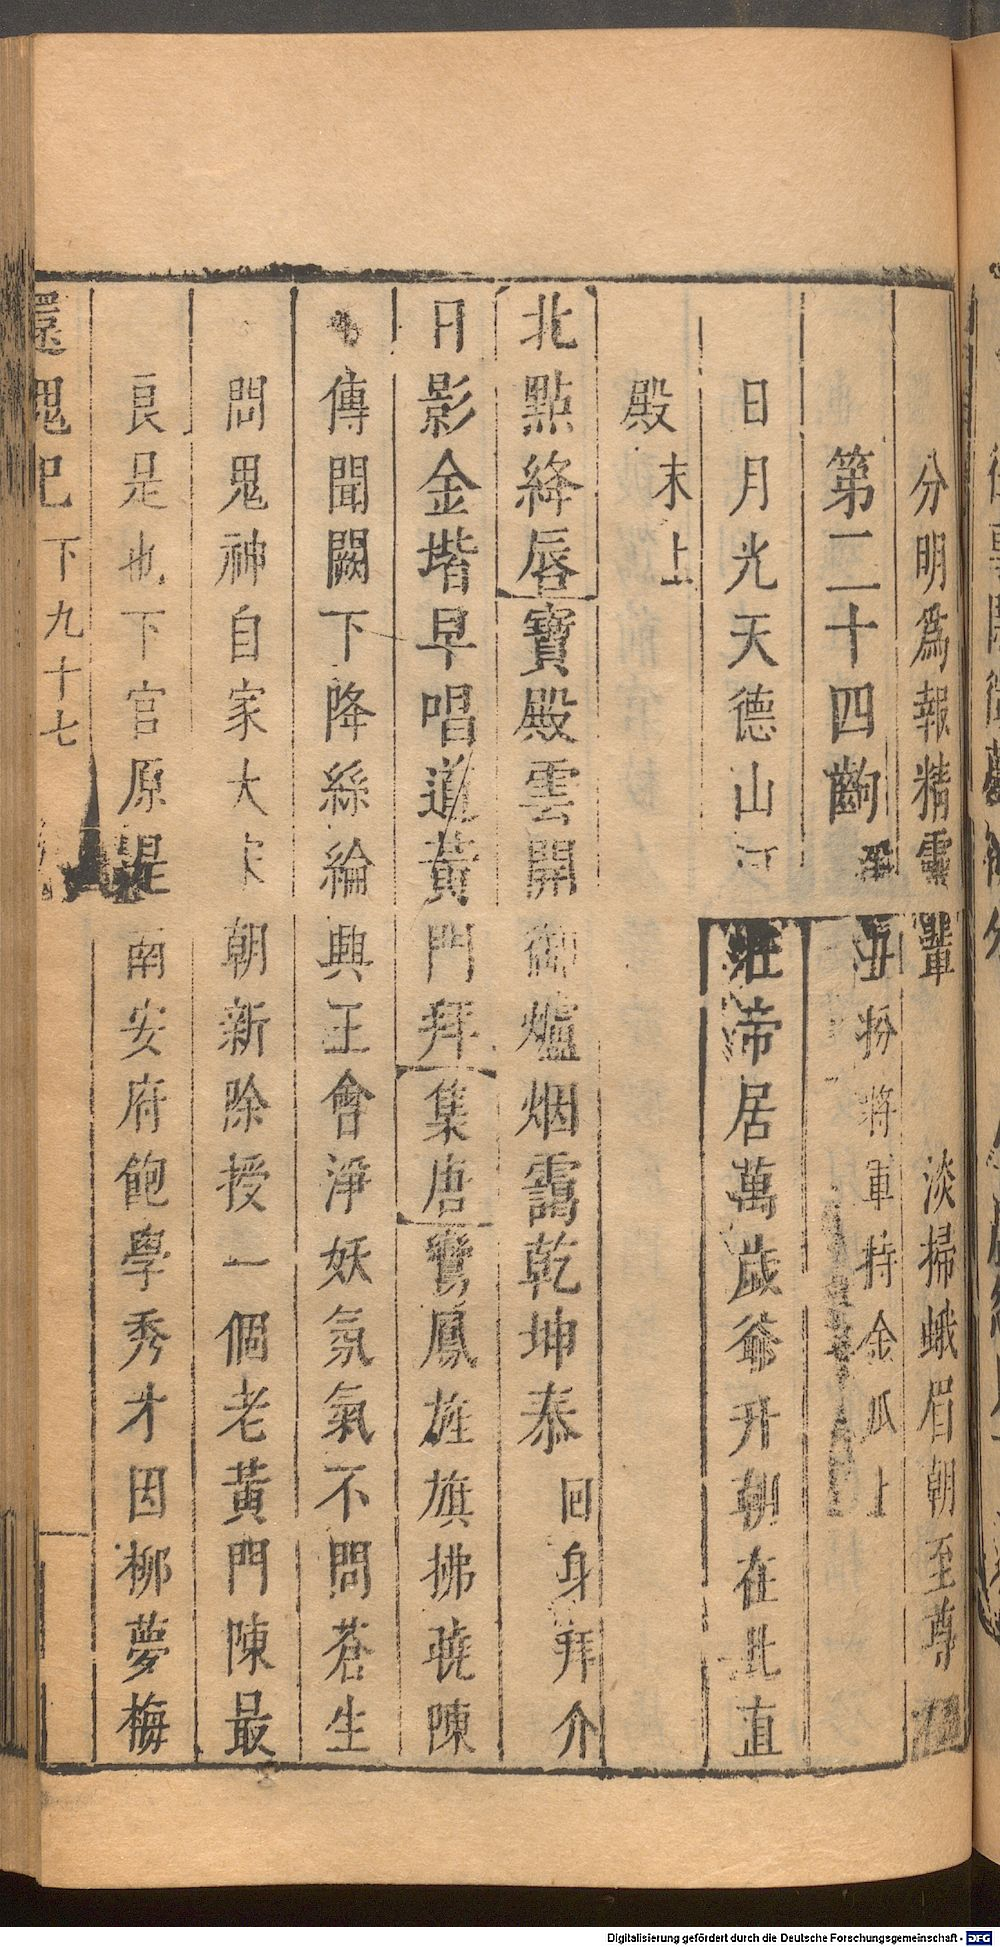 分明爲報精靈輩　淡掃蛾眉朝至尊
第二十四齣
丑扮將軍持金瓜上
日月光天德山河壯帝居萬歲爺升朝在此直
殿　末上
北點絳唇寶殿雲開御爐烟靄乾坤泰　回身拜介
日影金堦早唱道黃門拜集唐鸞鳳旌旗拂曉陳
傳聞闕下降絲綸興王會淨妖氛氣不問蒼生
問鬼神自家大宋朝新除授一個老黃門陳最
良是也下官原是南安府飽學秀才因柳夢梅
還魂記　下　九十七
Digitalisierung gefördert durch die Deutsche Forschungsgemeinschaft - DFG